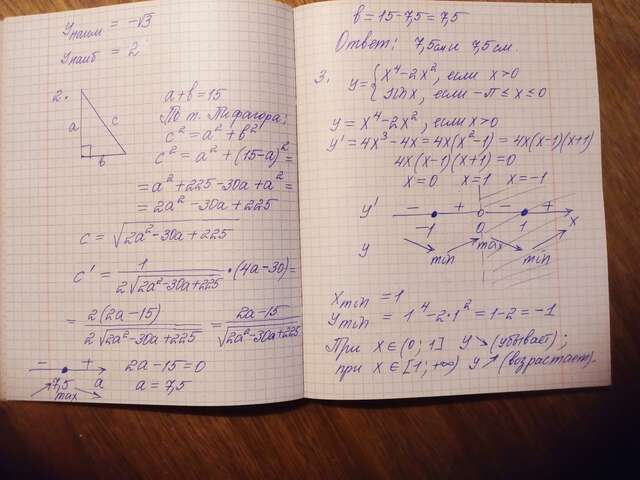 Yнаим = -√3
Yнаиб = 2
2.
a
c
b
a+b=15
По т. Пифагора:
c² = a² + b²
c² = a² + (15-a)² =
= a² + 225 - 30a + a² =
= 2a² - 30a + 225
c = √(2a² - 30a + 225)
c' = 1/(2√(2a²-30a+225)) • (4a-30) =
= 2(2a-15)/(2√(2a²-30a+225)) = (2a-15)/√(2a²-30a+225)
- + 2a-15=0
7,5 a a = 7,5
max
b = 15-7,5 = 7,5
Ответ: 7,5см и 7,5 см.
3. y = { x⁴-2x², если x>0
sinx, если -π ≤ x ≤ 0
y = x⁴-2x², если x>0
y' = 4x³-4x = 4x(x²-1) = 4x(x-1)(x+1)
4x(x-1)(x+1) = 0
x=0 x=1 x=-1
y' - + - +
-1 0 1 x
y min max min
Xmin = 1
Ymin = 1⁴-2•1² = 1-2 = -1
При x∈(0; 1] y↘(убывает);
при x∈[1; +∞) y↗(возрастает).